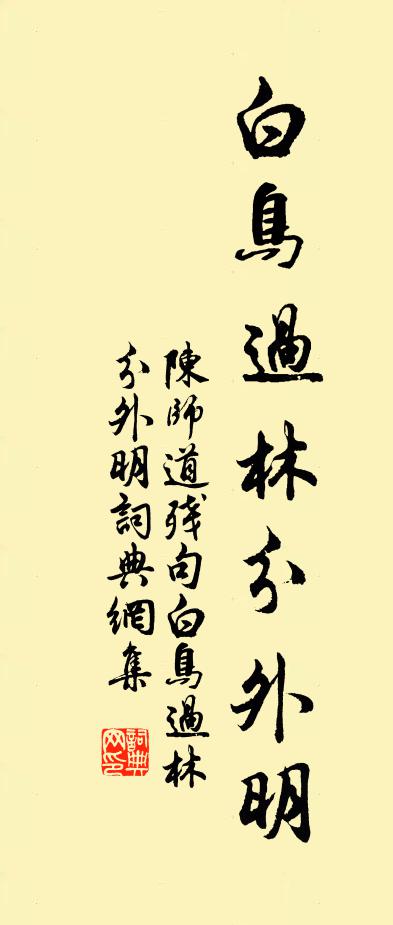 白鳥過林分外明
陳師道残句白鳥過林
分外明詞典網集
詞典網印